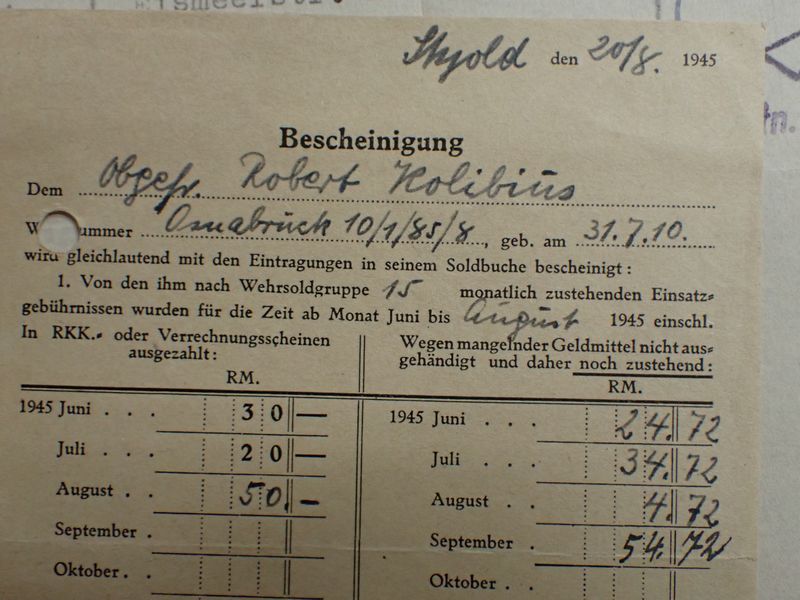 Eismeerstr.
Skjold den 20/8. 1945
Bescheinigung
Dem Obgefr. Robert Kolibius
W ummer Osnabrück 10/1/85/8, geb. am 31.7.10.
wird gleichlautend mit den Eintragungen in seinem Soldbuche bescheinigt:
1. Von den ihm nach Wehrsoldgruppe 15 monatlich zustehenden Einsatz-
gebührnissen wurden für die Zeit ab Monat Juni bis August 1945 einschl.
In RKK.- oder Verrechnungsscheinen
ausgezahlt:
RM.
1945 Juni . . . 30 —
Juli . . . 20 —
August . . 50. —
September .
Oktober . .
Wegen mangelnder Geldmittel nicht aus-
gehändigt und daher noch zustehend:
RM.
1945 Juni . . . 24.72
Juli . . . 34.72
August . . 4.72
September . 54.72
Oktober . .